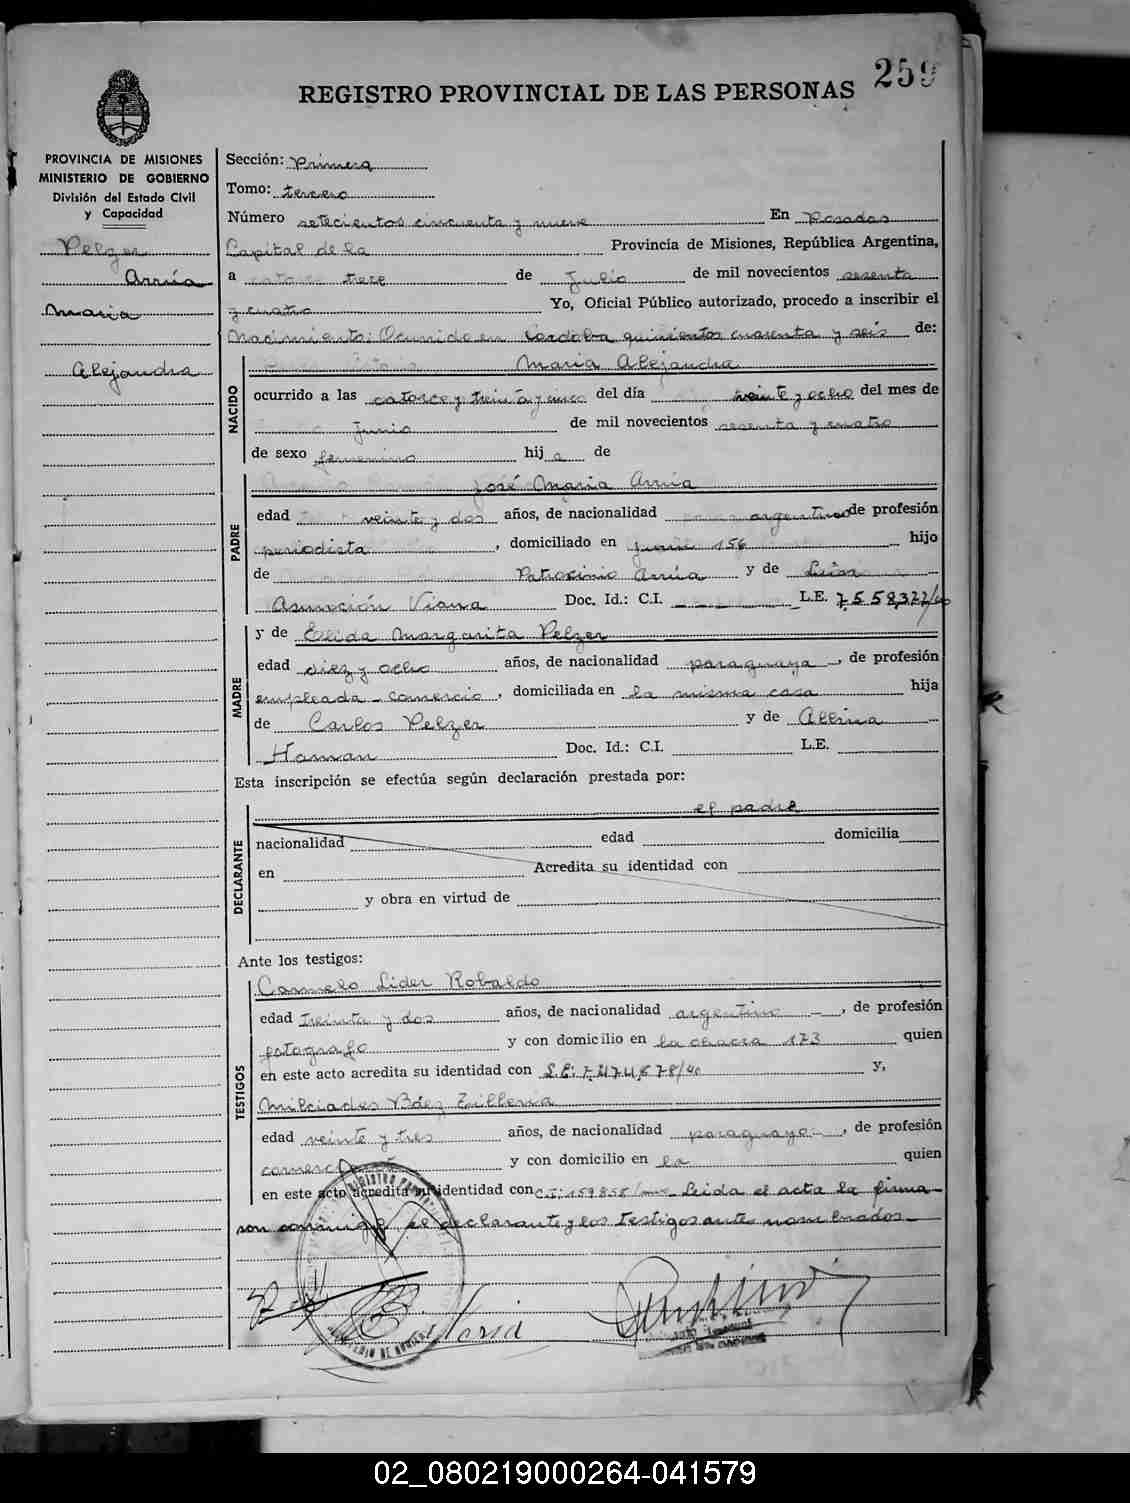 259
REGISTRO PROVINCIAL DE LAS PERSONAS
PROVINCIA DE MISIONES
MINISTERIO DE GOBIERNO
División del Estado Civil
y Capacidad
Pelzer
Arrúa
Maria
Alejandra
Sección: Primera
Tomo: tercero
Número setecientos cincuenta y nueve En Posadas
Capital de la Provincia de Misiones, República Argentina,
a trece de Julio de mil novecientos sesenta
y cuatro Yo, Oficial Público autorizado, procedo a inscribir el
Nacimiento: Ocurrido en Cordoba quinientos cuarenta y seis de:
NACIDO
Maria Alejandra
ocurrido a las catorce y treinta y cinco del día veinte y ocho del mes de
Junio de mil novecientos sesenta y cuatro
de sexo femenino hija de
PADRE
José Maria Arrúa
edad veinte y dos años, de nacionalidad argentino de profesión
periodista, domiciliado en Junin 156 hijo
de Patrocinio Arrúa y de Luisa
Asunción Viana Doc. Id.: C.I. L.E. 7.558,322/
MADRE
y de Elida Margarita Pelzer
edad diez y ocho años, de nacionalidad paraguaya, de profesión
empleada - comercio, domiciliada en la misma casa hija
de Carlos Pelzer y de Albina
Haman Doc. Id.: C.I. L.E.
Esta inscripción se efectúa según declaración prestada por:
DECLARANTE
el padre
nacionalidad edad domicilia
en Acredita su identidad con
y obra en virtud de
Ante los testigos:
TESTIGOS
Carmelo Lider Robaldo
edad treinta y dos años, de nacionalidad argentino -, de profesión
fotografo y con domicilio en la chacra 173 quien
en este acto acredita su identidad con L.E: 7,474,678/ y,
Milciades Báez
edad veinte y tres años, de nacionalidad paraguayo -, de profesión
y con domicilio en la quien
en este acto acredita su identidad con C.I: 159858/ Leida el acta la firma
son conmigo, el declarante y los testigos antes nombrados -
02_080219000264-041579